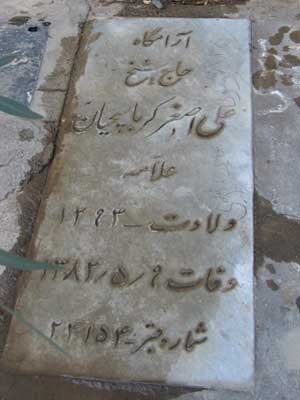 آرامگاه
حاج شیخ
علی اصغر کرباسچیان
علامه
ولادت - ۱۲۹۳
وفات ۹ / ۵ / ۱۳۸۲
شماره قبر - ۲۴۱۵۴